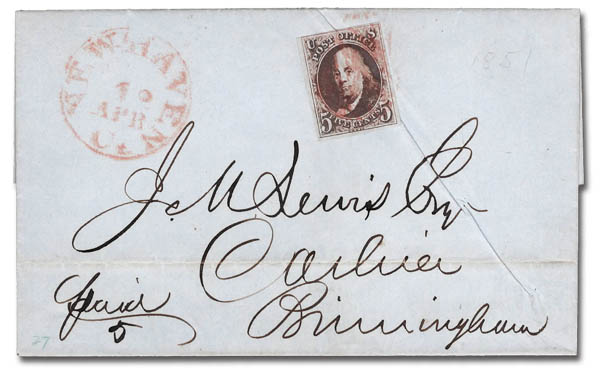 NEW HAVEN
10
APR
Ct
U S
POST OFFICE
5 FIVE CENTS 5
1851
J. M. Lewis Esqr
Cashier
Birmingham
Paid
5
27